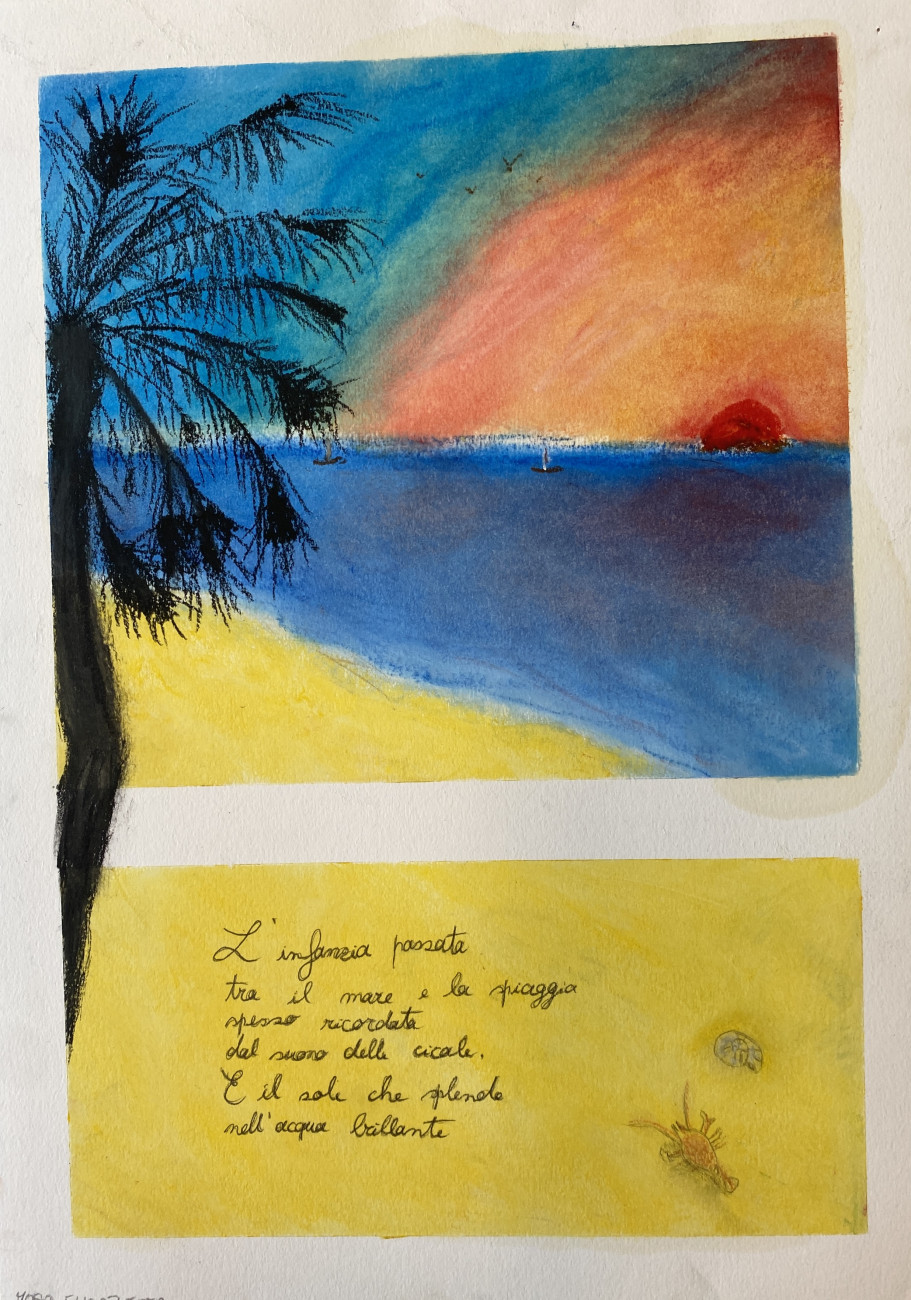 L'infanzia passata
tra il mare e la spiaggia
spesso ricordata
dal suono delle cicale.
E il sole che splende
nell'acqua brillante